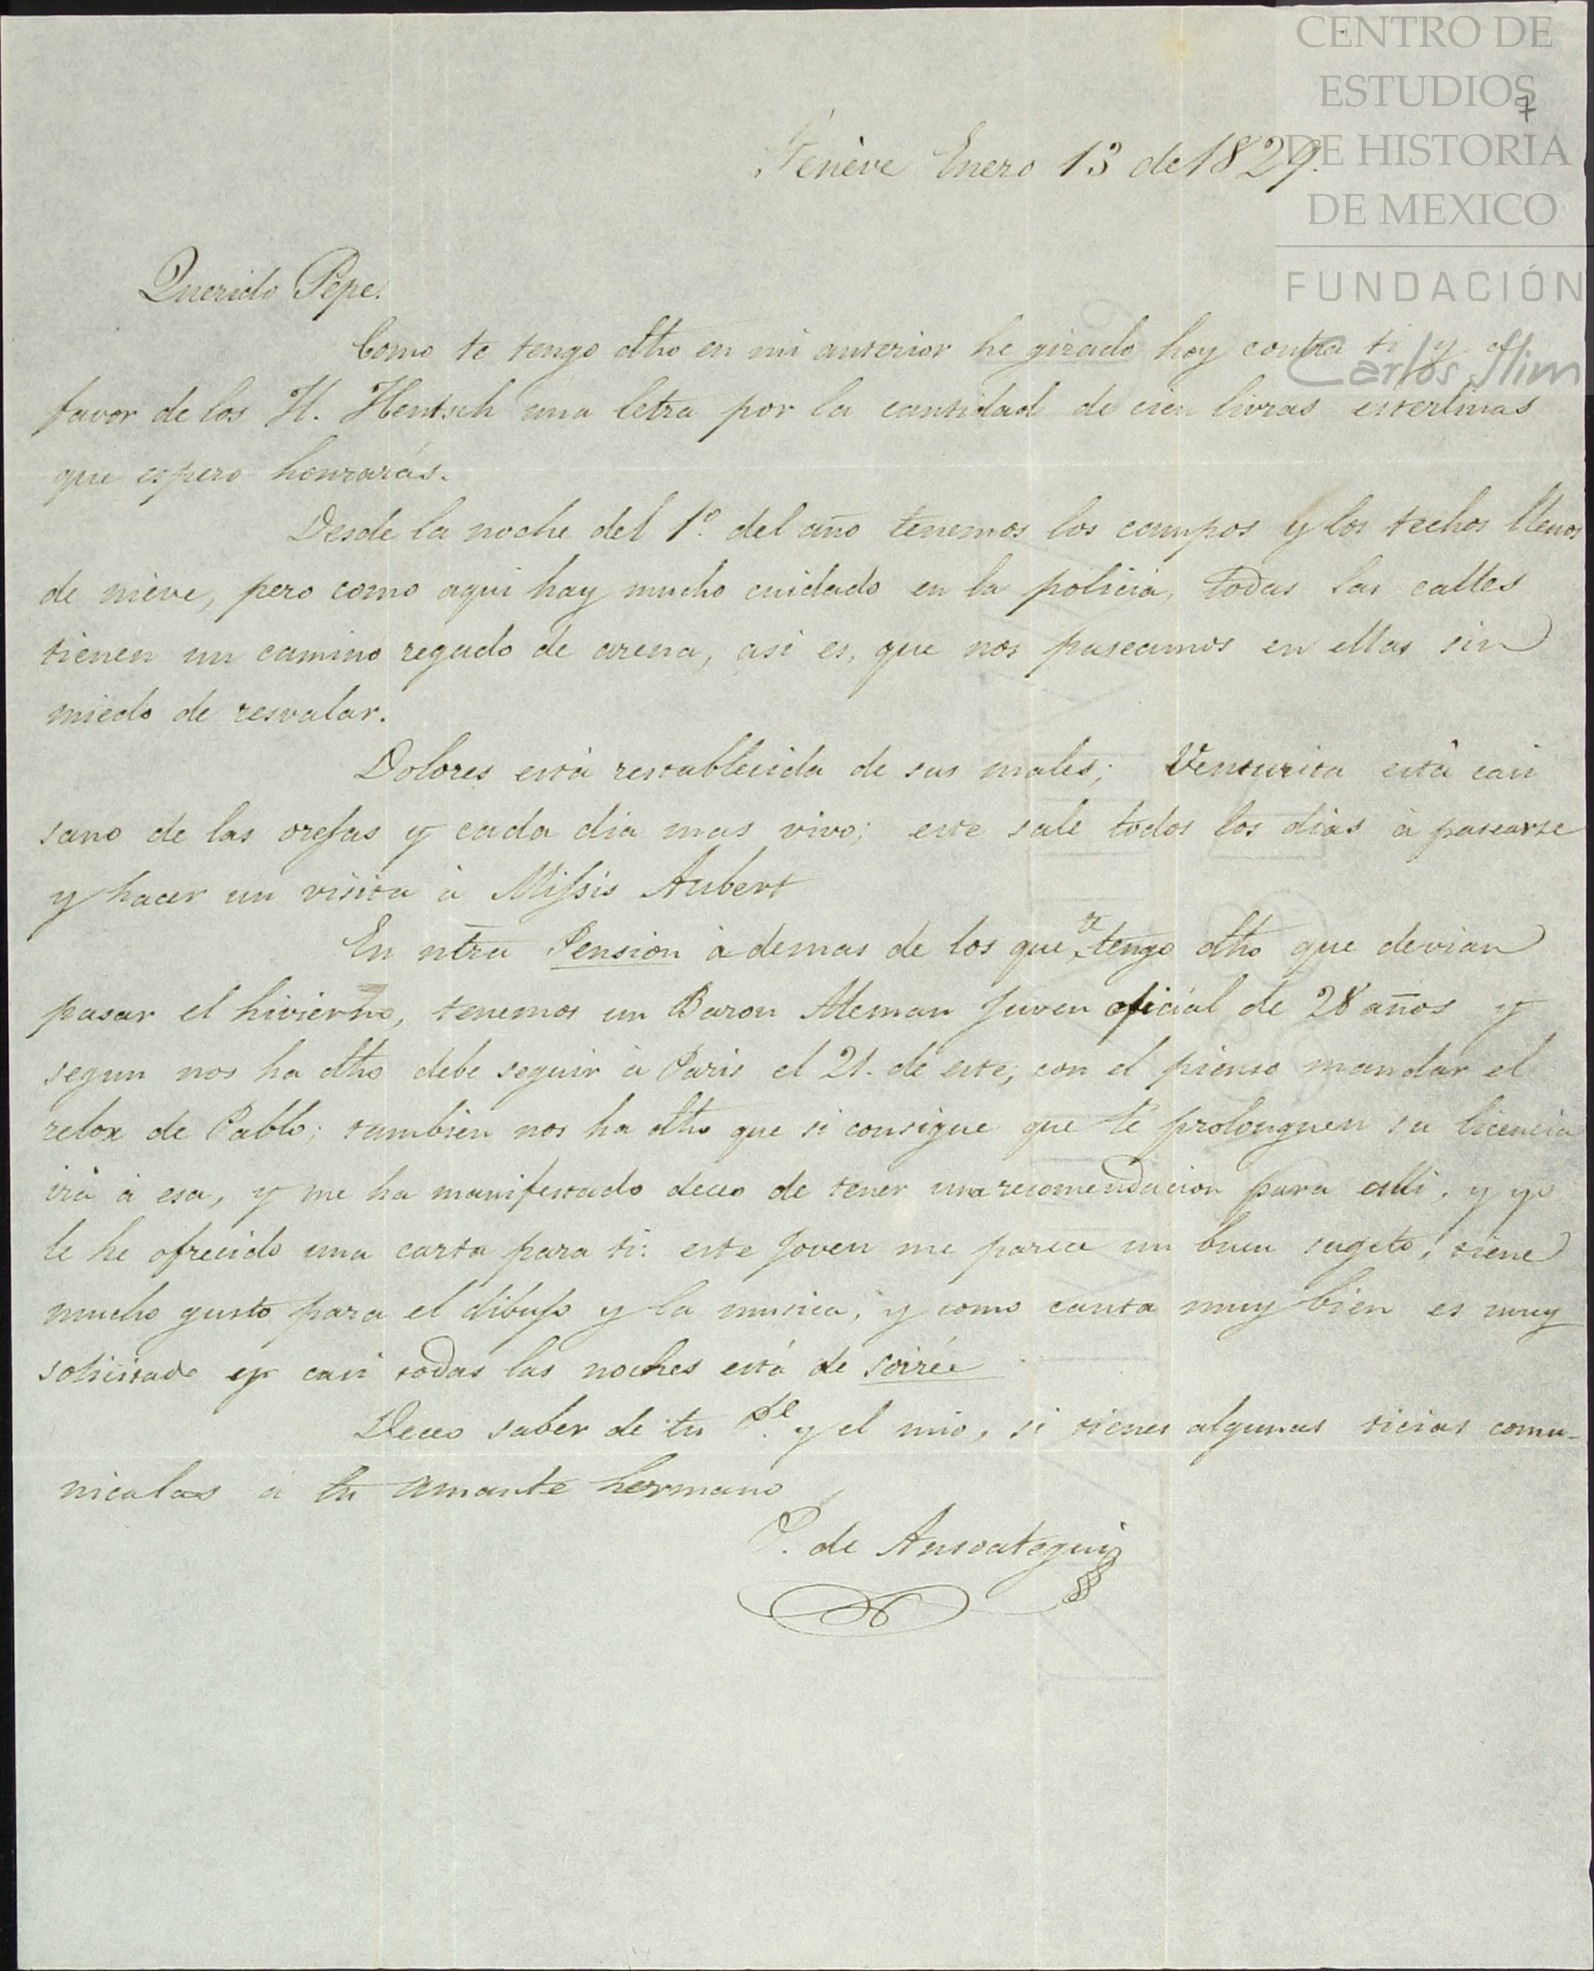 CENTRO DE
ESTUDIOS
DE HISTORIA
DE MEXICO
FUNDACIÓN
Carlos Slim
7
Genève Enero 13 de 1829.
Querido Pepe.
Como te tengo dho en mi anterior he girado hoy contra ti y a
favor de los H. Hentsch una letra por la cantidad de cien livras esterlinas
que espero honrarás.
Desde la noche del 1º. del año tenemos los campos y los techos llenos
de nieve, pero como aqui hay mucho cuidado en la policia, todas las calles
tienen un camino regado de arena, asi es, que nos paseamos en ellas sin
miedo de resvalar.
Dolores está restablecida de sus males; Venturita está casi
sano de las orejas y cada dia mas vivo; este sale todos los dias à pasearse
y hacer un visita à Missis Aubert
En ntra Pension à demas de los que te tengo dho que devian
pasar el hivierno, tenemos un Baron Aleman Juven oficial de 28 años y
segun nos ha dho debe seguir à Paris el 21. de este, con el pienso mandar el
relox de Pablo; tambien nos ha dho que si consigue que le prolonguen su licencia
irà à esa, y me ha manifestado deceo de tener una recomendacion para alli, y yo
le he ofrecido una carta para ti: este Joven me parece un buen sugeto, tiene
mucho gusto para el dibujo y la musica, y como canta muy bien es muy
solicitado y casi todas las noches está de soirée
Deceo saber de tu y el mio, si tienes algunas ticias comu-
nicalas à tu amante hermano
P. de Ansoategui